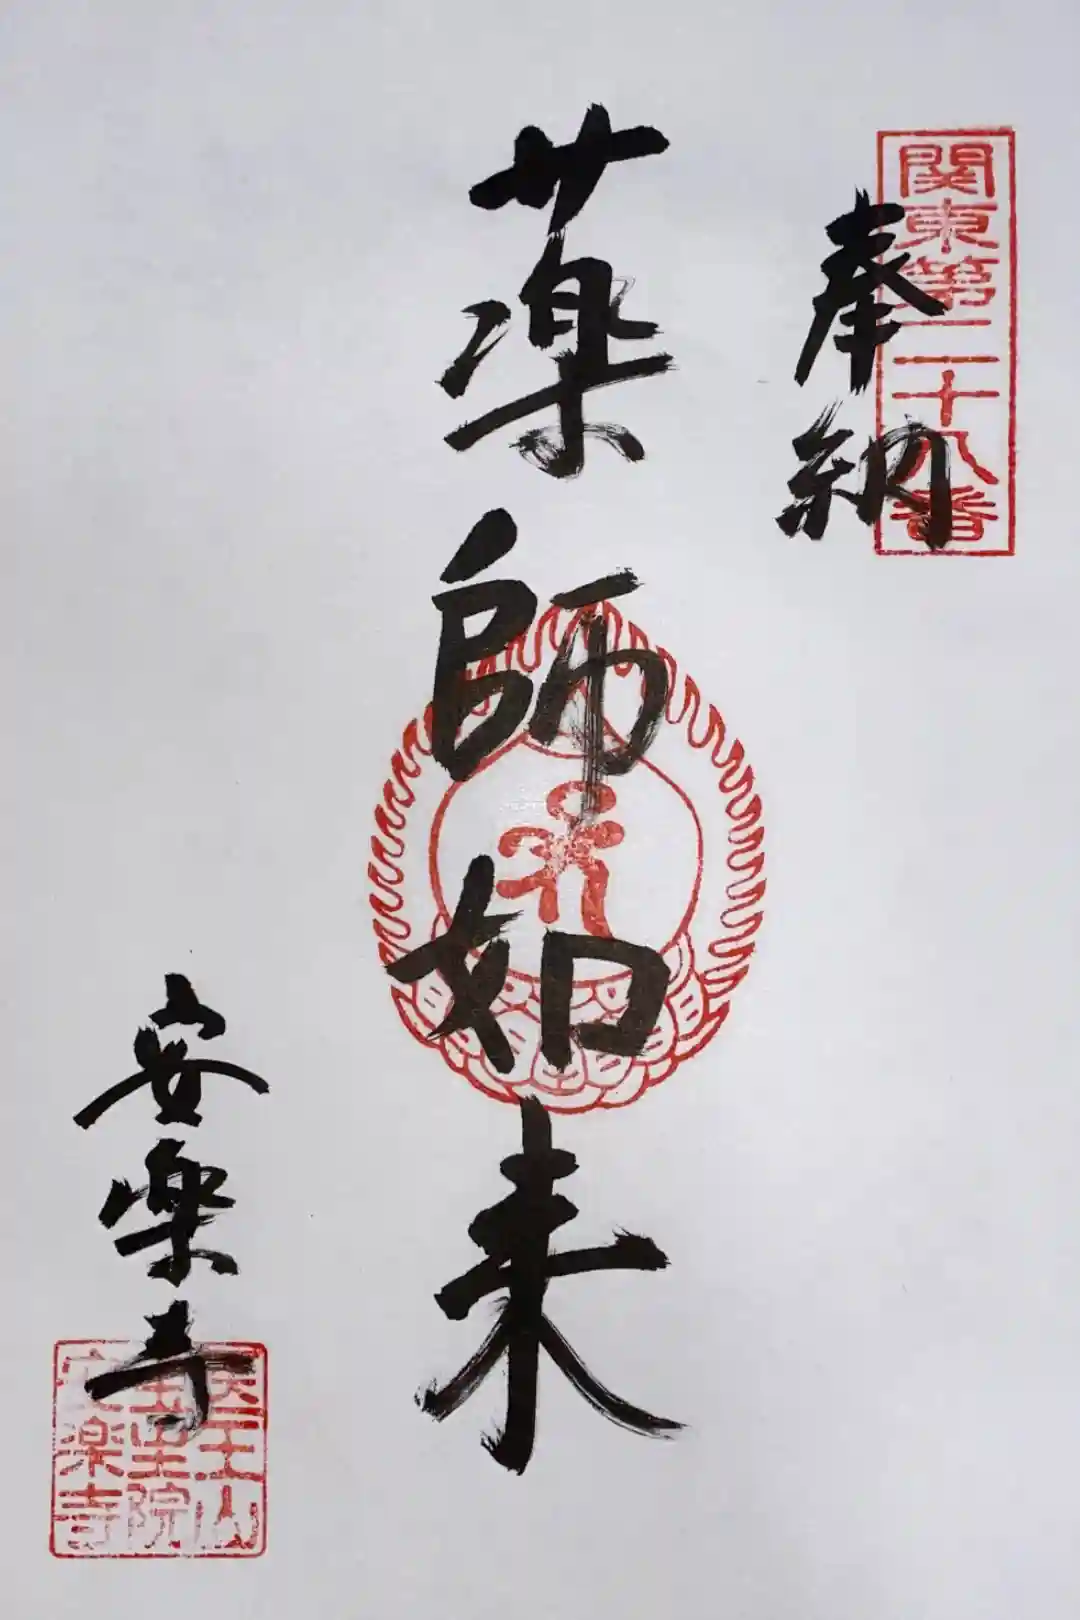 関東第二十八番
奉納
薬師如来
安楽寺
医王山
院
安楽寺